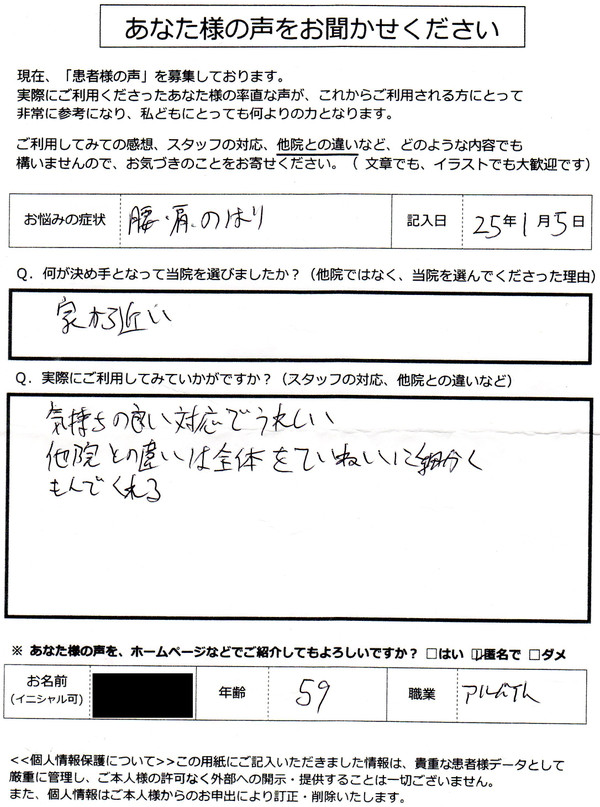 あなた様の声をお聞かせください
現在、「患者様の声」を募集しております。
実際にご利用くださったあなた様の率直な声が、これからご利用される方にとって
非常に参考になり、私どもにとっても何よりの力となります。
ご利用してみての感想、スタッフの対応、他院との違いなど、どのような内容でも
構いませんので、お気づきのことをお寄せください。（ 文章でも、イラストでも大歓迎です）
お悩みの症状 腰・肩のはり 記入日 25年1月5日
Q．何が決め手となって当院を選びましたか？（他院ではなく、当院を選んでくださった理由）
家から近い
Q．実際にご利用してみていかがですか？（スタッフの対応、他院との違いなど）
気持ちの良い対応でうれしい
他院との違いは全体をていねいに細かく
もんでくれる
※ あなた様の声を、ホームページなどでご紹介してもよろしいですか？ □はい ☑匿名で □ダメ
お名前 年齢 59 職業 アルバイト
(イニシャル可)
<<個人情報保護について>>この用紙にご記入いただきました情報は、貴重な患者様データとして
厳重に管理し、ご本人様の許可なく外部への開示・提供することは一切ございません。
また、個人情報はご本人様からのお申出により訂正・削除いたします。